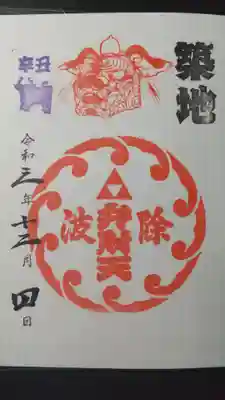 築地
波除
弁財天
令和三年十二月四日